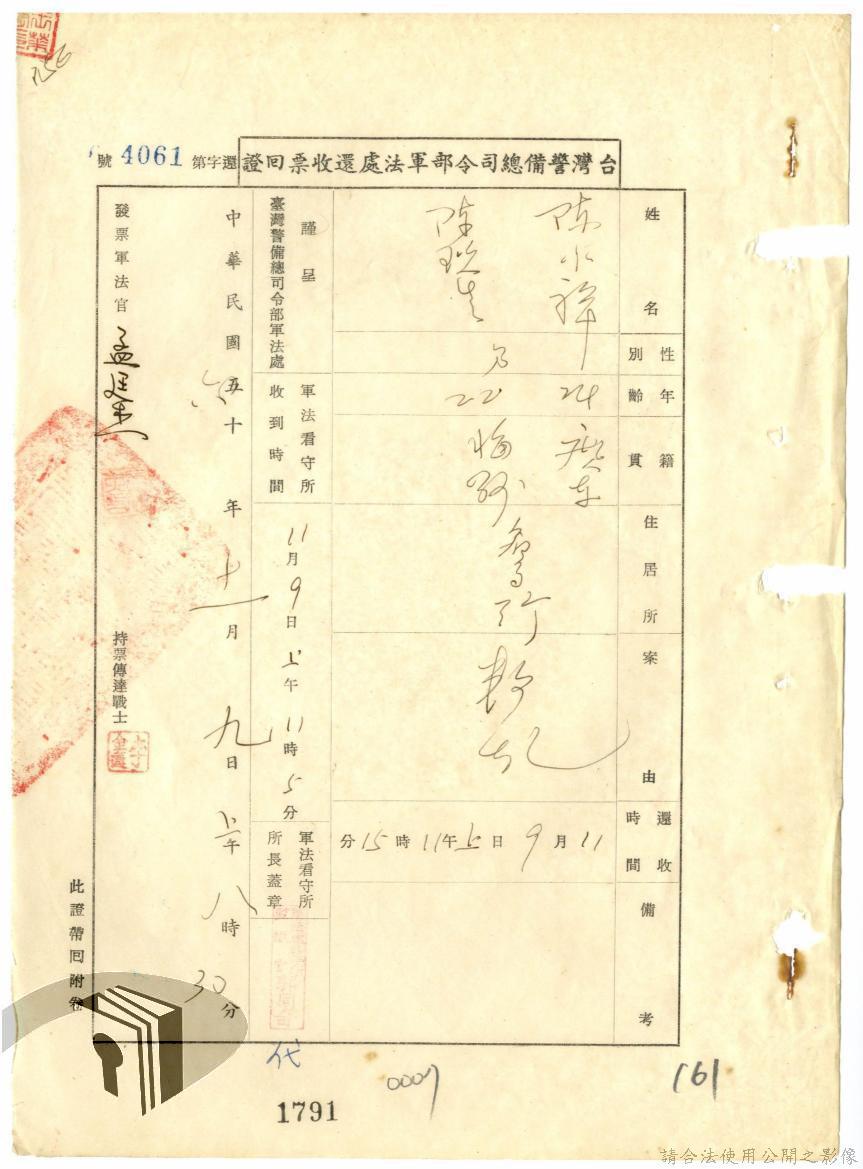 台灣警備總司令部軍法處還收票回證
還字第 4061 號
姓名
陈水祥
陈
性別
男
年齡
24
22
籍貫
屏东
住居所
在押
案由
叛乱
還收時間
11月9日上午11時15分
備考
謹呈
臺灣警備總司令部軍法處
軍法看守所收到時間
11月9日上午11時5分
軍法看守所所長蓋章
代
中華民國五十六年十一月九日上午八時30分
發票軍法官
持票傳達戰士
此證帶回附卷
0007
161
1791
請合法使用公開之影像